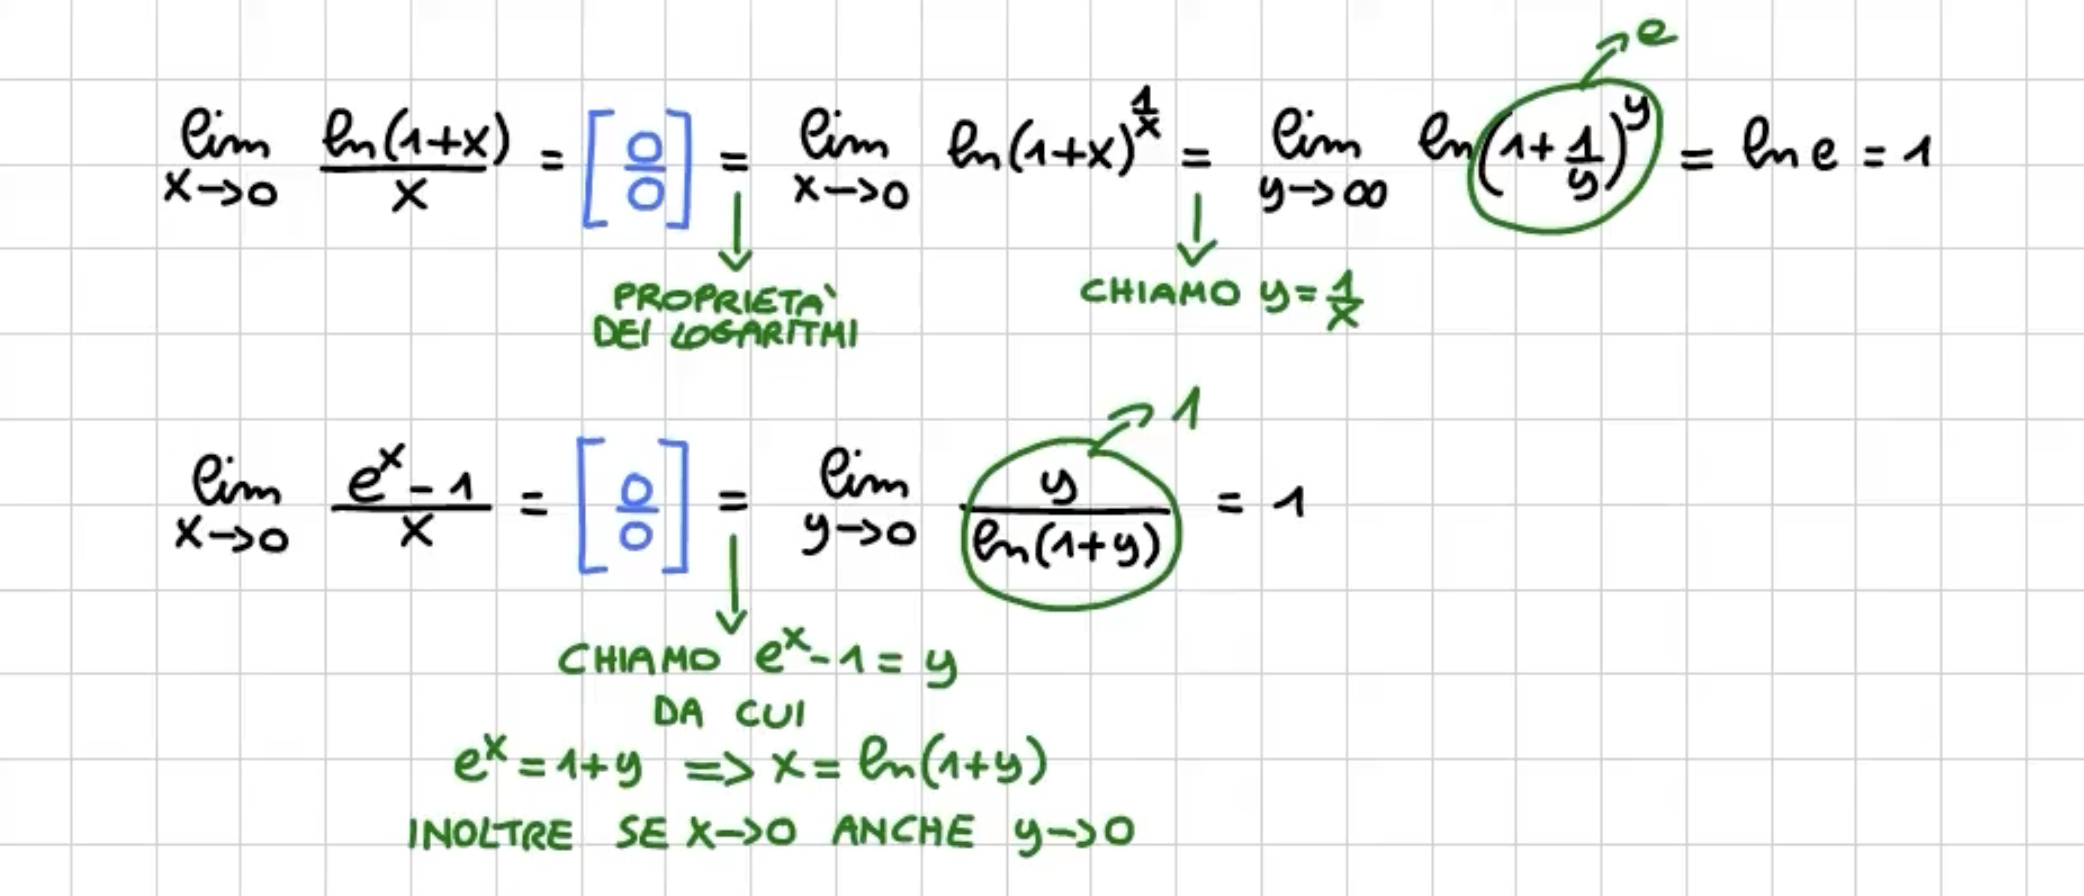 e
lim x→0 ln(1+x)/x = [0/0] = lim x→0 ln(1+x)^(1/x) = lim y→∞ ln(1+1/y)^y = ln e = 1
PROPRIETÀ
DEI LOGARITMI
CHIAMO y=1/x
1
lim x→0 (e^x-1)/x = [0/0] = lim y→0 y/ln(1+y) = 1
CHIAMO e^x-1=y
DA CUI
e^x=1+y => x=ln(1+y)
INOLTRE SE x→0 ANCHE y→0